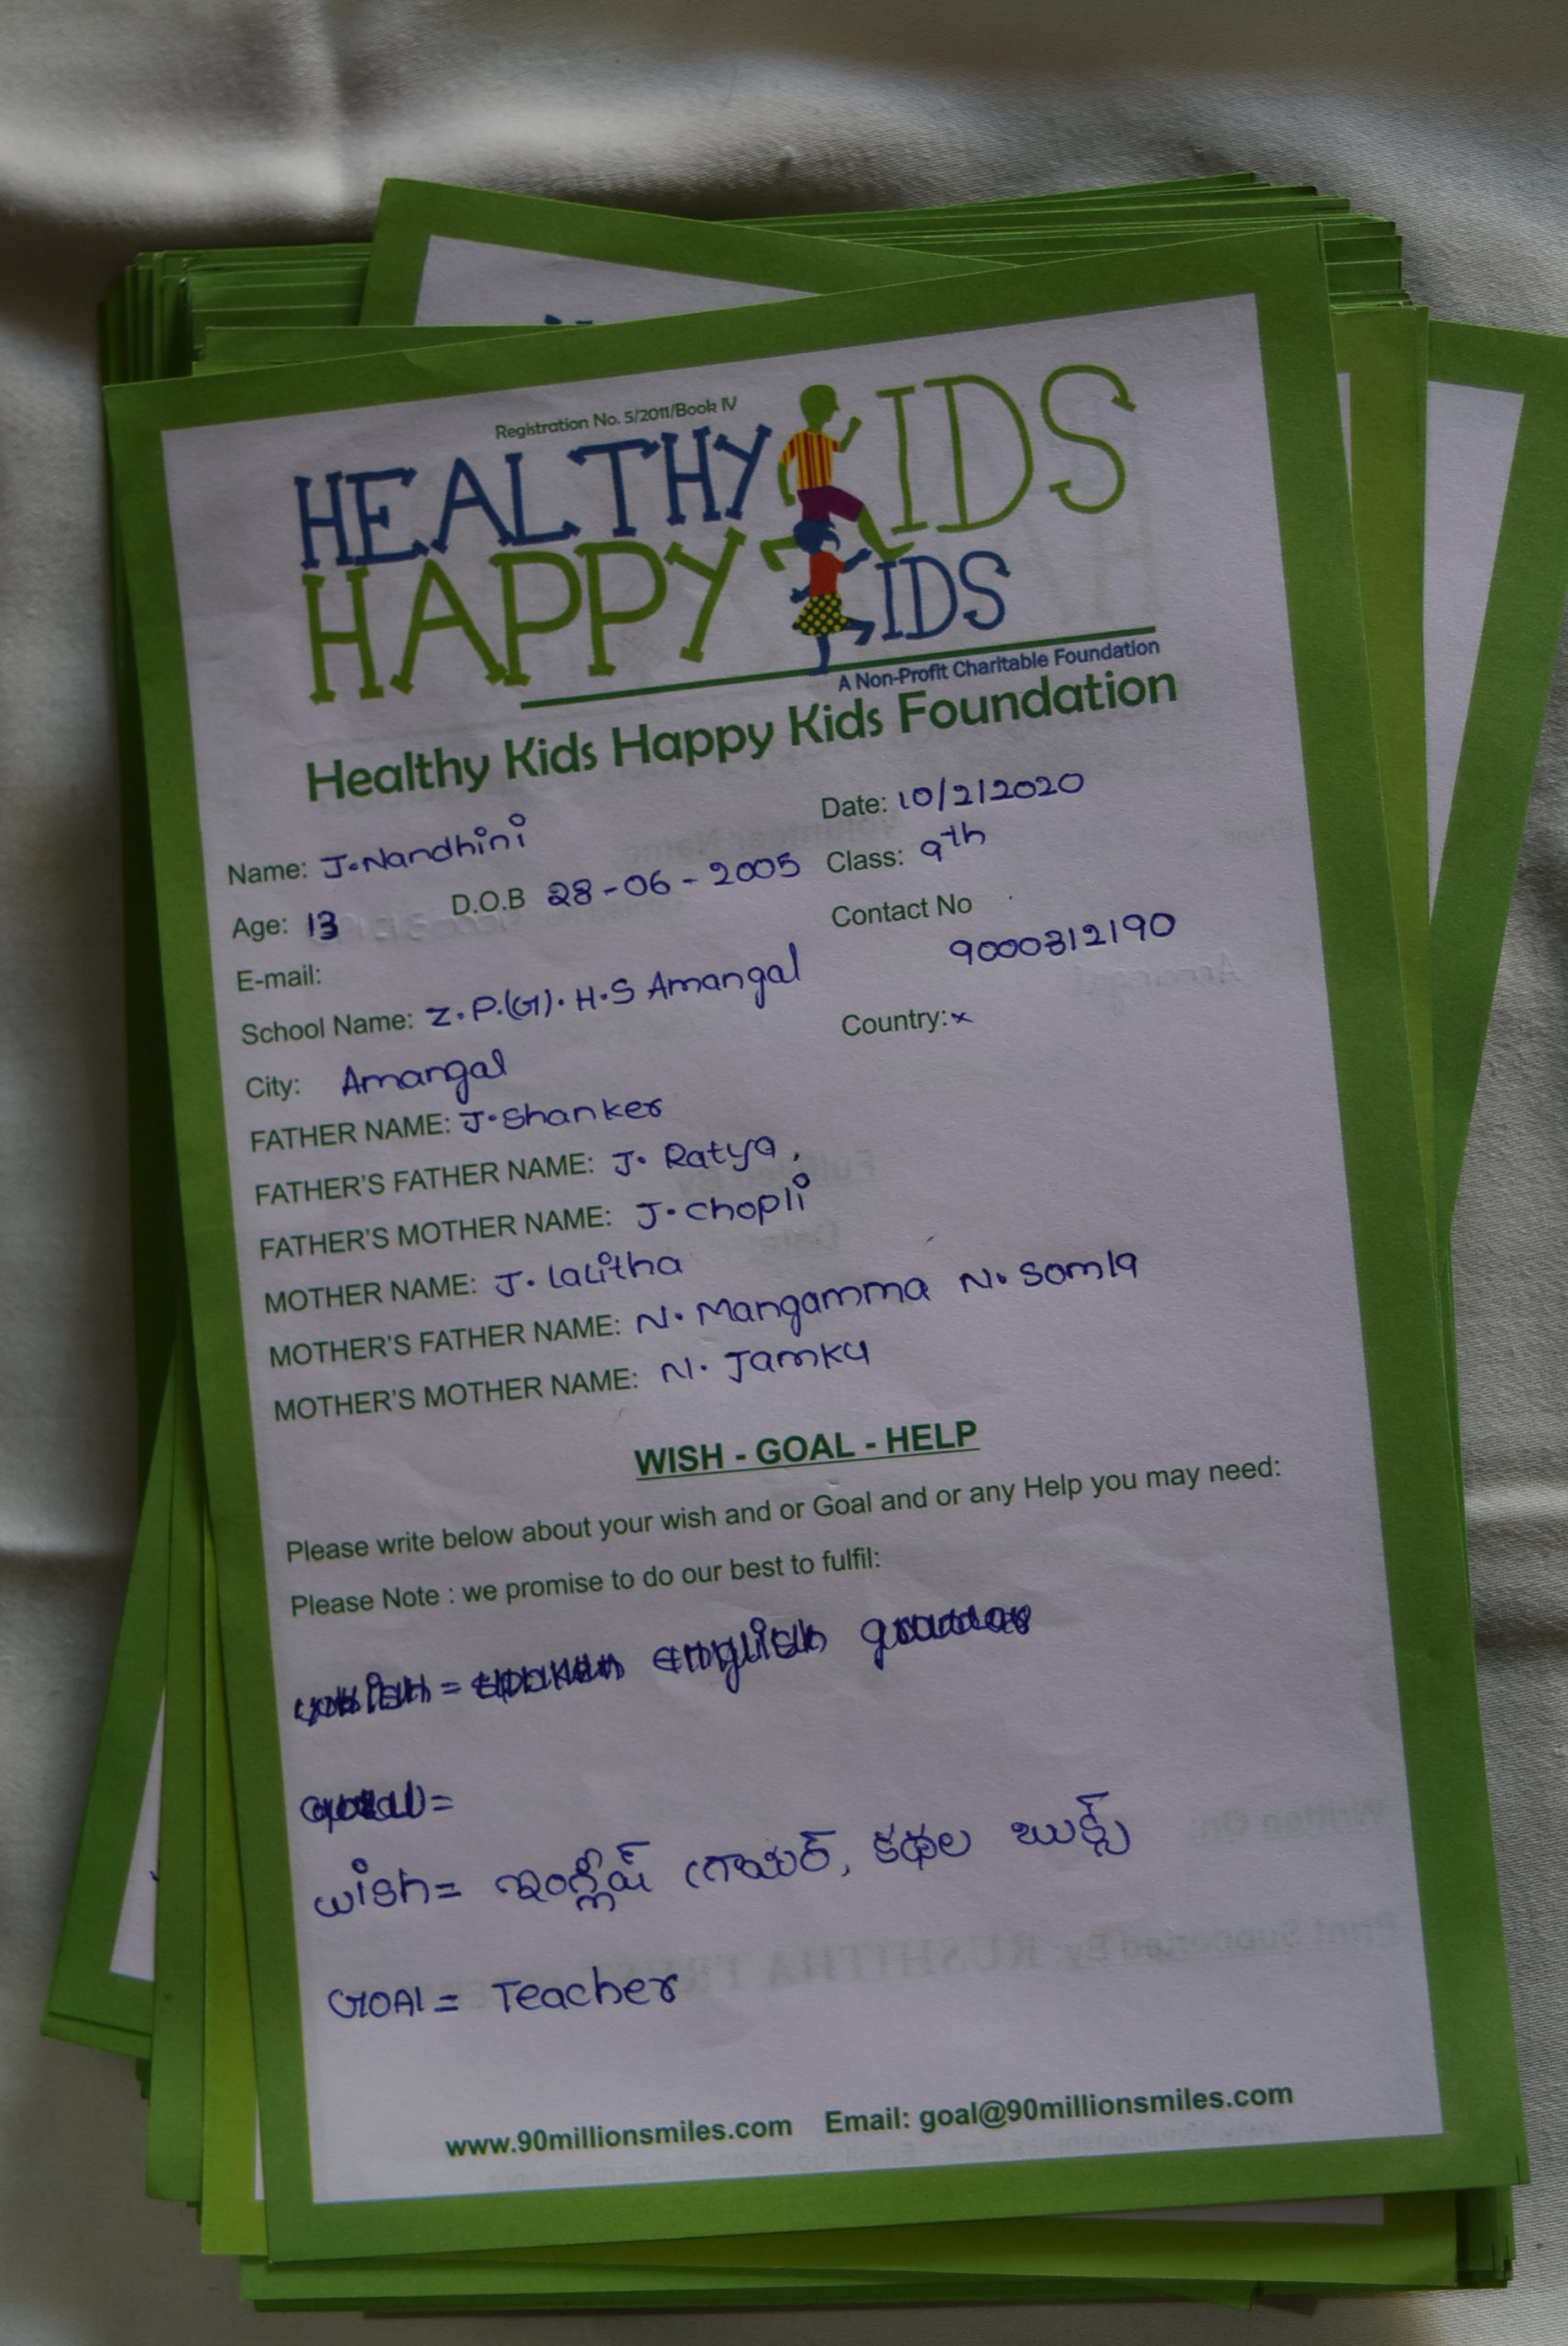 Registration No. 5/2011/Book IV
HEALTHY KIDS
HAPPY KIDS
A Non-Profit Charitable Foundation
Healthy Kids Happy Kids Foundation
Name: J.Nandhini Date: 10/2/2020
Age: 13 D.O.B 28-06-2005 Class: 9th
E-mail: Contact No
9000312190
School Name: Z.P.(G).H.S Amangal
City: Amangal Country: x
FATHER NAME: J.Shanker
FATHER'S FATHER NAME: J. Ratya,
FATHER'S MOTHER NAME: J.chopli
MOTHER NAME: J.lalitha
MOTHER'S FATHER NAME: N. Mangamma N. Somla
MOTHER'S MOTHER NAME: N. Jamku
WISH - GOAL - HELP
Please write below about your wish and or Goal and or any Help you may need:
Please Note : we promise to do our best to fulfil:
english
wish= ఇంగ్లీష్ గ్రామర్, కథల బుక్స్
GOAl= Teacher
www.90millionsmiles.com Email: goal@90millionsmiles.com